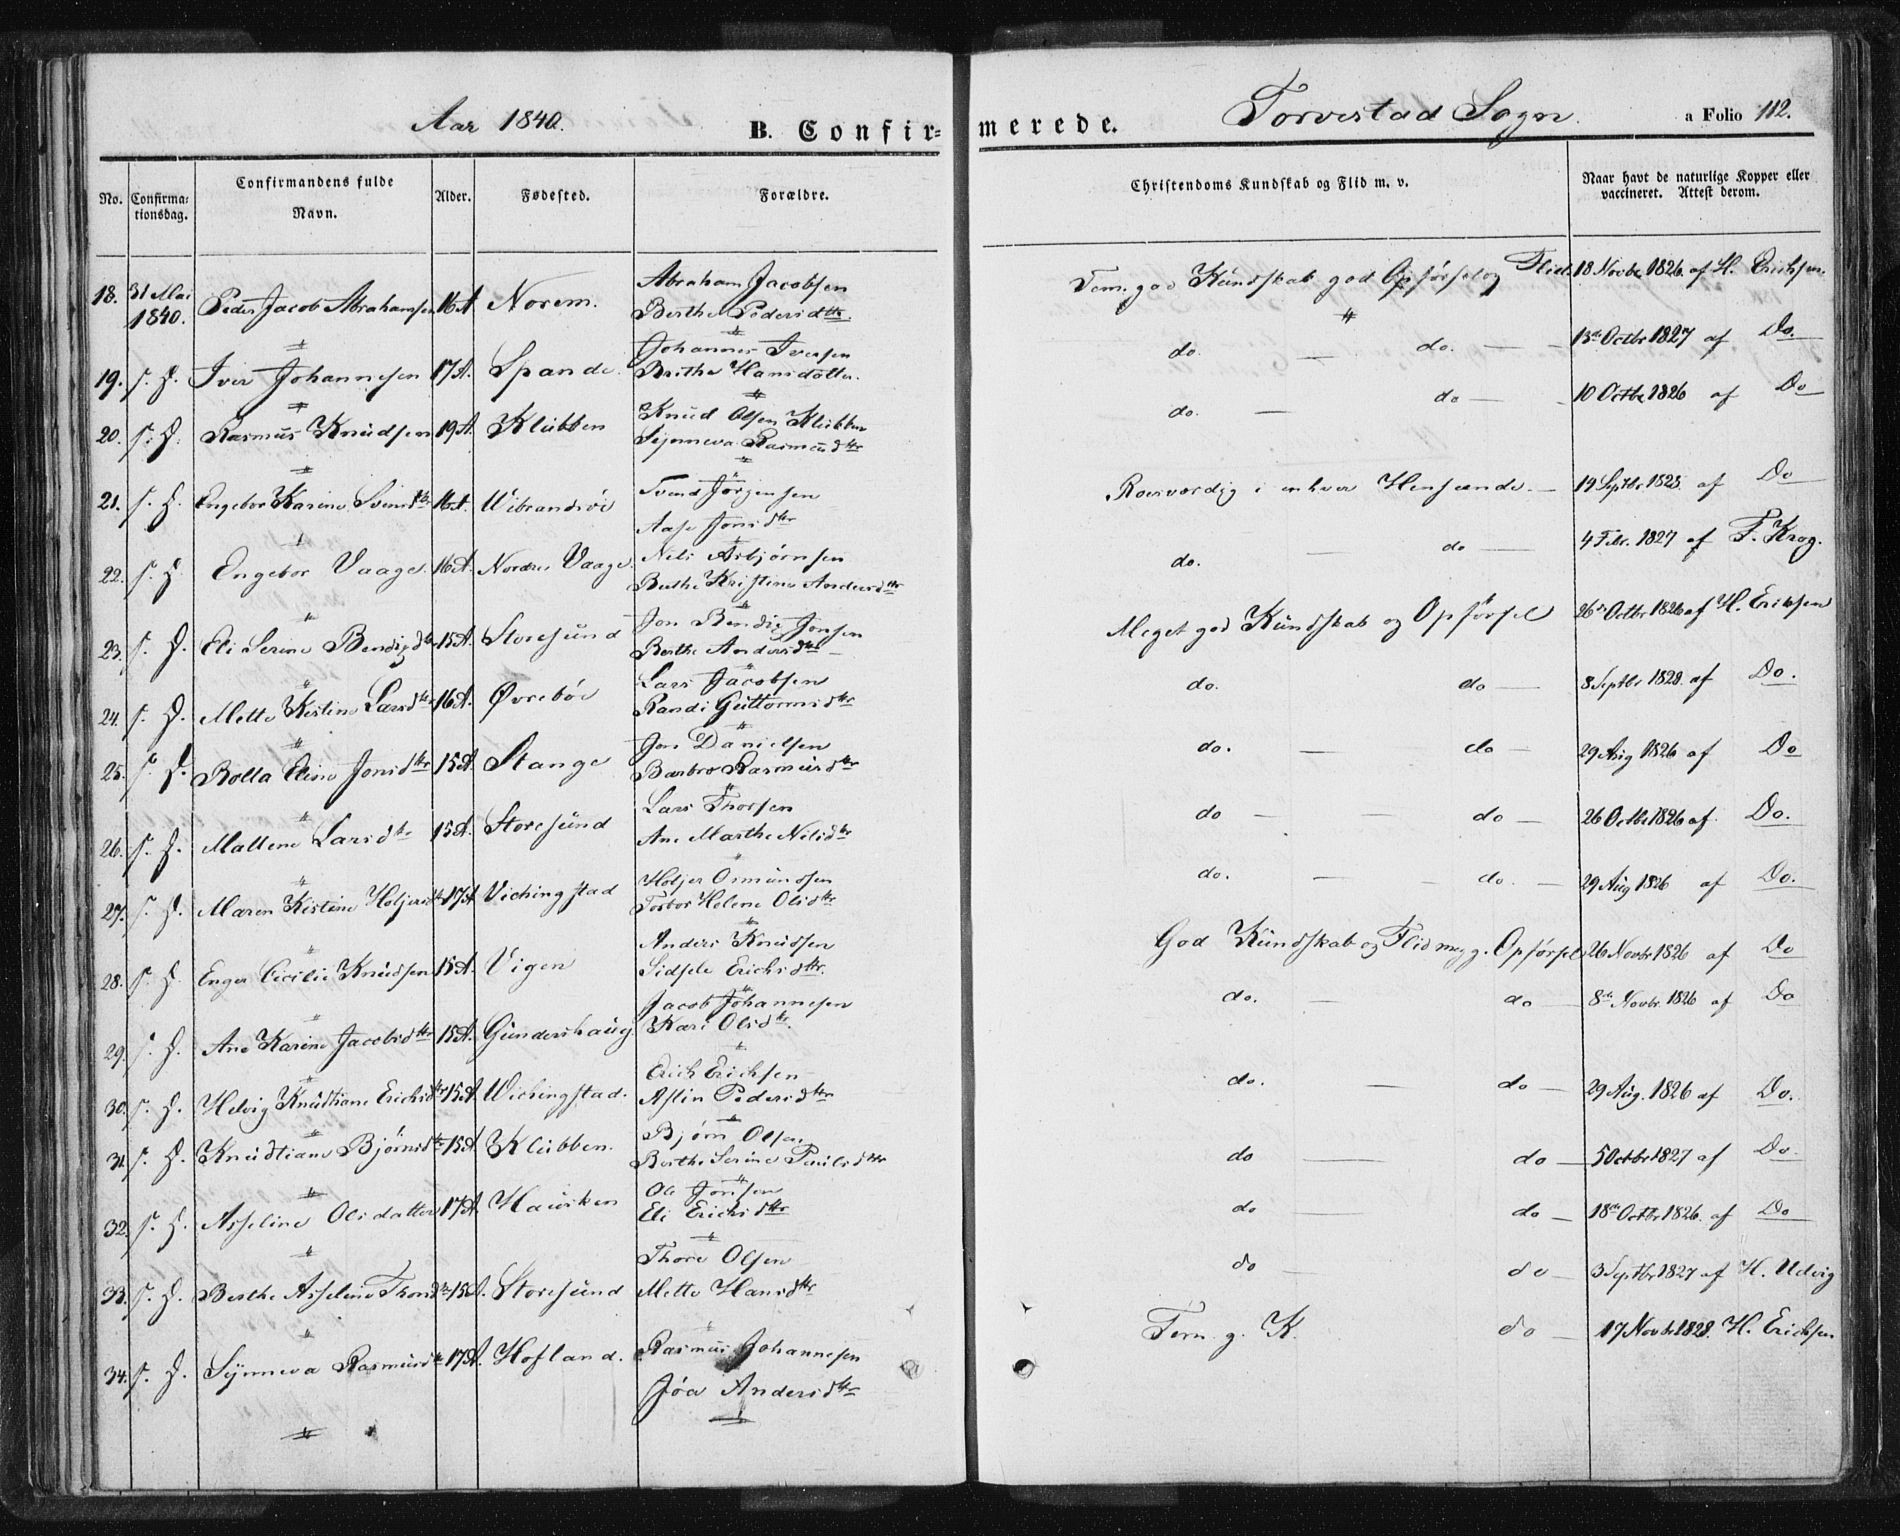 Aar 1840.
B. Confirmerede.
Torvestad Sogn.
a Folio 112.
No.
Confirmationsdag.
Confirmandens fulde Navn.
Alder.
Fødested.
Forældre.
Christendoms Kundskab og Flid m. v.
Naar havt de naturlige Kopper eller vaccineret. Attest derom.
18. 31 Mai 1840. Peder Jacob Abrahamsen 16 A Norem. Abraham Jacobsen Berthe Pedersdttr. Tem. god Kundskab god Opførsel og Flid. 18 Novbr 1826. af H. Erichsen.
19. s. D. Iver Johannesen 17 A. Spande. Johannes Iversen Brithe Hansdatter. do. — do. — 13de Octbr 1827 af Do.
20. s. D. Rasmus Knudsen 19 A. Klubben Knud Olsen Klubben Synneva Rasmusdttr do. — do — 10 Octbr 1826 af Do
21. s. D. Engebor Karine Svensdtr 16 A. Wibrandsøe Svend Jørgensen Aase Jonsdttr Roesværdig i enhver Henseende. — 19 Septbr 1825. af Do
22. s. D. Engebor Vaage. 16 A. Nordre Vaage. Nils Asbjørnsen Berthe Kristine Andersdttr do. — do — 4 Febr. 1827 af F. Krog.
23. s. D. Eli Serine Bendigdtr 15 A. Storesund Jon Bendig Jonsen Berthe Andersdttr Meget god Kundskab og Opførsel 26de Octbr 1826 af H. Eriksen
24. s. D. Mette Kistine Larsdtr 16 A. Øvrebøe Lars Jacobsen Randi Guttormsdttr do. do — 8 Septbr 1828. af Do.
25. s. D. Bolla Eline Jonsdttr 15 A. Stange Jon Danielsen Barbro Rasmusdttr do. — do — 29 Aug 1826 af Do
26. s. D. Mallene Larsdtr 15 A. Storesund Lars Thorsen Ane Marthe Nilsdtr do — — do — 26 Octbr 1826 af Do.
27. s. D. Maren Kistine Holjersdtr 17 A Vichingstad Holjer Omundsen Torbor Helene Olsdttr do. — do. — 29 Aug 1826 af Do.
28. s. D. Enger Cicilie Knudsen 15 A. Vigen Anders Knudsen Sidsele Erichsdttr. God Kundskab og Flid meg g. Opførsel 26 Novbr 1826 af Do
29. s. D. Ane Karine Jacobsdttr 15 A. Gundershaug Jacob Johannesen Kari Olsdtr. do. — do — 8de Novbr. 1826 af Do
30. s. D. Helvig Knudtiane Erichsdtr 15 A Wichingstad. Erich Erichsen Aslin Pedersdttr do. — do — 29 Aug. 1826 af Do.
31. s. D. Knudtiane Bjørnsdtr 15 A. Klubben. Bjørn Olsen Berthe Serine Paulsdttr do — do — 5 Octbr 1827 af Do.
32. s. D. Asseline Olsdatter 17 A. Hausken Ole Jonsen Eli Erichsdttr do — do — 18de Octbr 1826. af Do
33. s. D. Berthe Asseline Thorsdtr 15 A. Storesund Thore Olsen Mette Hansdttr do — do — 3 Septbr 1827 af H. Udvig
34. s. D. Synneva Rasmusdtr 17 A. Hofland. Rasmus Johannesen Jøa Andersdtr Tem. g. K. do — 17 Novbr 1828. H. Erichsen